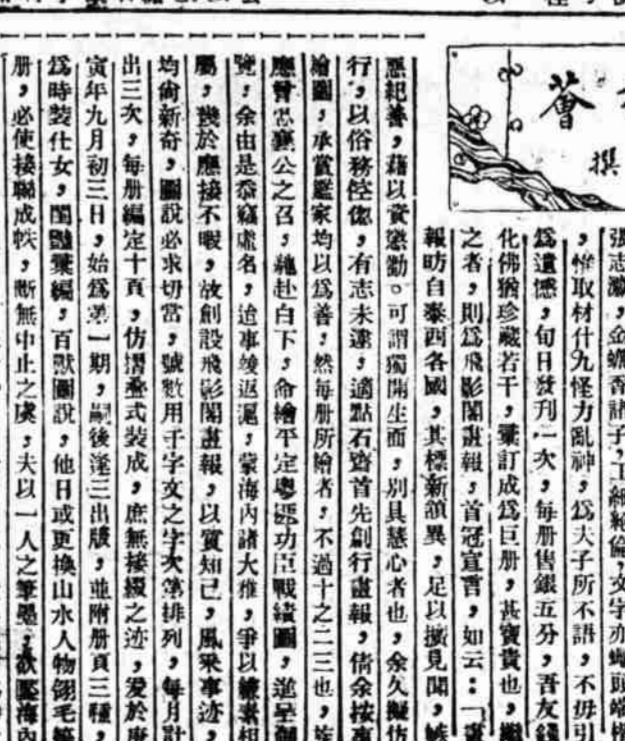 薈
撰
張志瀛,金蟾香諸子,工細絕倫,文字亦蠅頭端楷
,惟取材什九怪力亂神,爲夫子所不語,不毋引
爲遺憾,旬日發刊一次,每册售銀五分,吾友錢
化佛猶珍藏若干,彙訂成爲巨册,甚寶貴也,繼
之者,則爲飛影閣畫報,首冠宣言,如云:「畫
報昉自泰西各國,其標新領異,足以擴見聞,
惡紀善,藉以資懲勸。可謂獨開生面,別具慧心者也,余久擬仿
行,以俗務倥傯,有志未逮,適點石齋首先創行畫報,倩余按事
繪圖,承賞鑑家均以爲善,然每册所繪者,不過十之二三也,旋
應曾忠襄公之召,趨赴白下,命繪平定粵匪功臣戰績圖,進呈御
覽,余由是忝竊虛名,迨事竣返滬,蒙海內諸大雅,爭以縑素相
屬,幾於應接不暇,故創設飛影閣畫報,以質知己,風采事迹,
均尚新奇,圖說必求切當,號數用千字文之字次第排列,每月計
出三次,每册編定十頁,仿摺疊式裝成,庶無接綴之迹,爰於庚
寅年九月初三日,始爲第一期,嗣後逢三出版,並附册頁三種,
爲時裝仕女,閨豔彙編,百獸圖說,他日或更換山水人物翎毛等
册,必使接聯成帙,斷無中止之虞,夫以一人之筆墨,欲壓海內